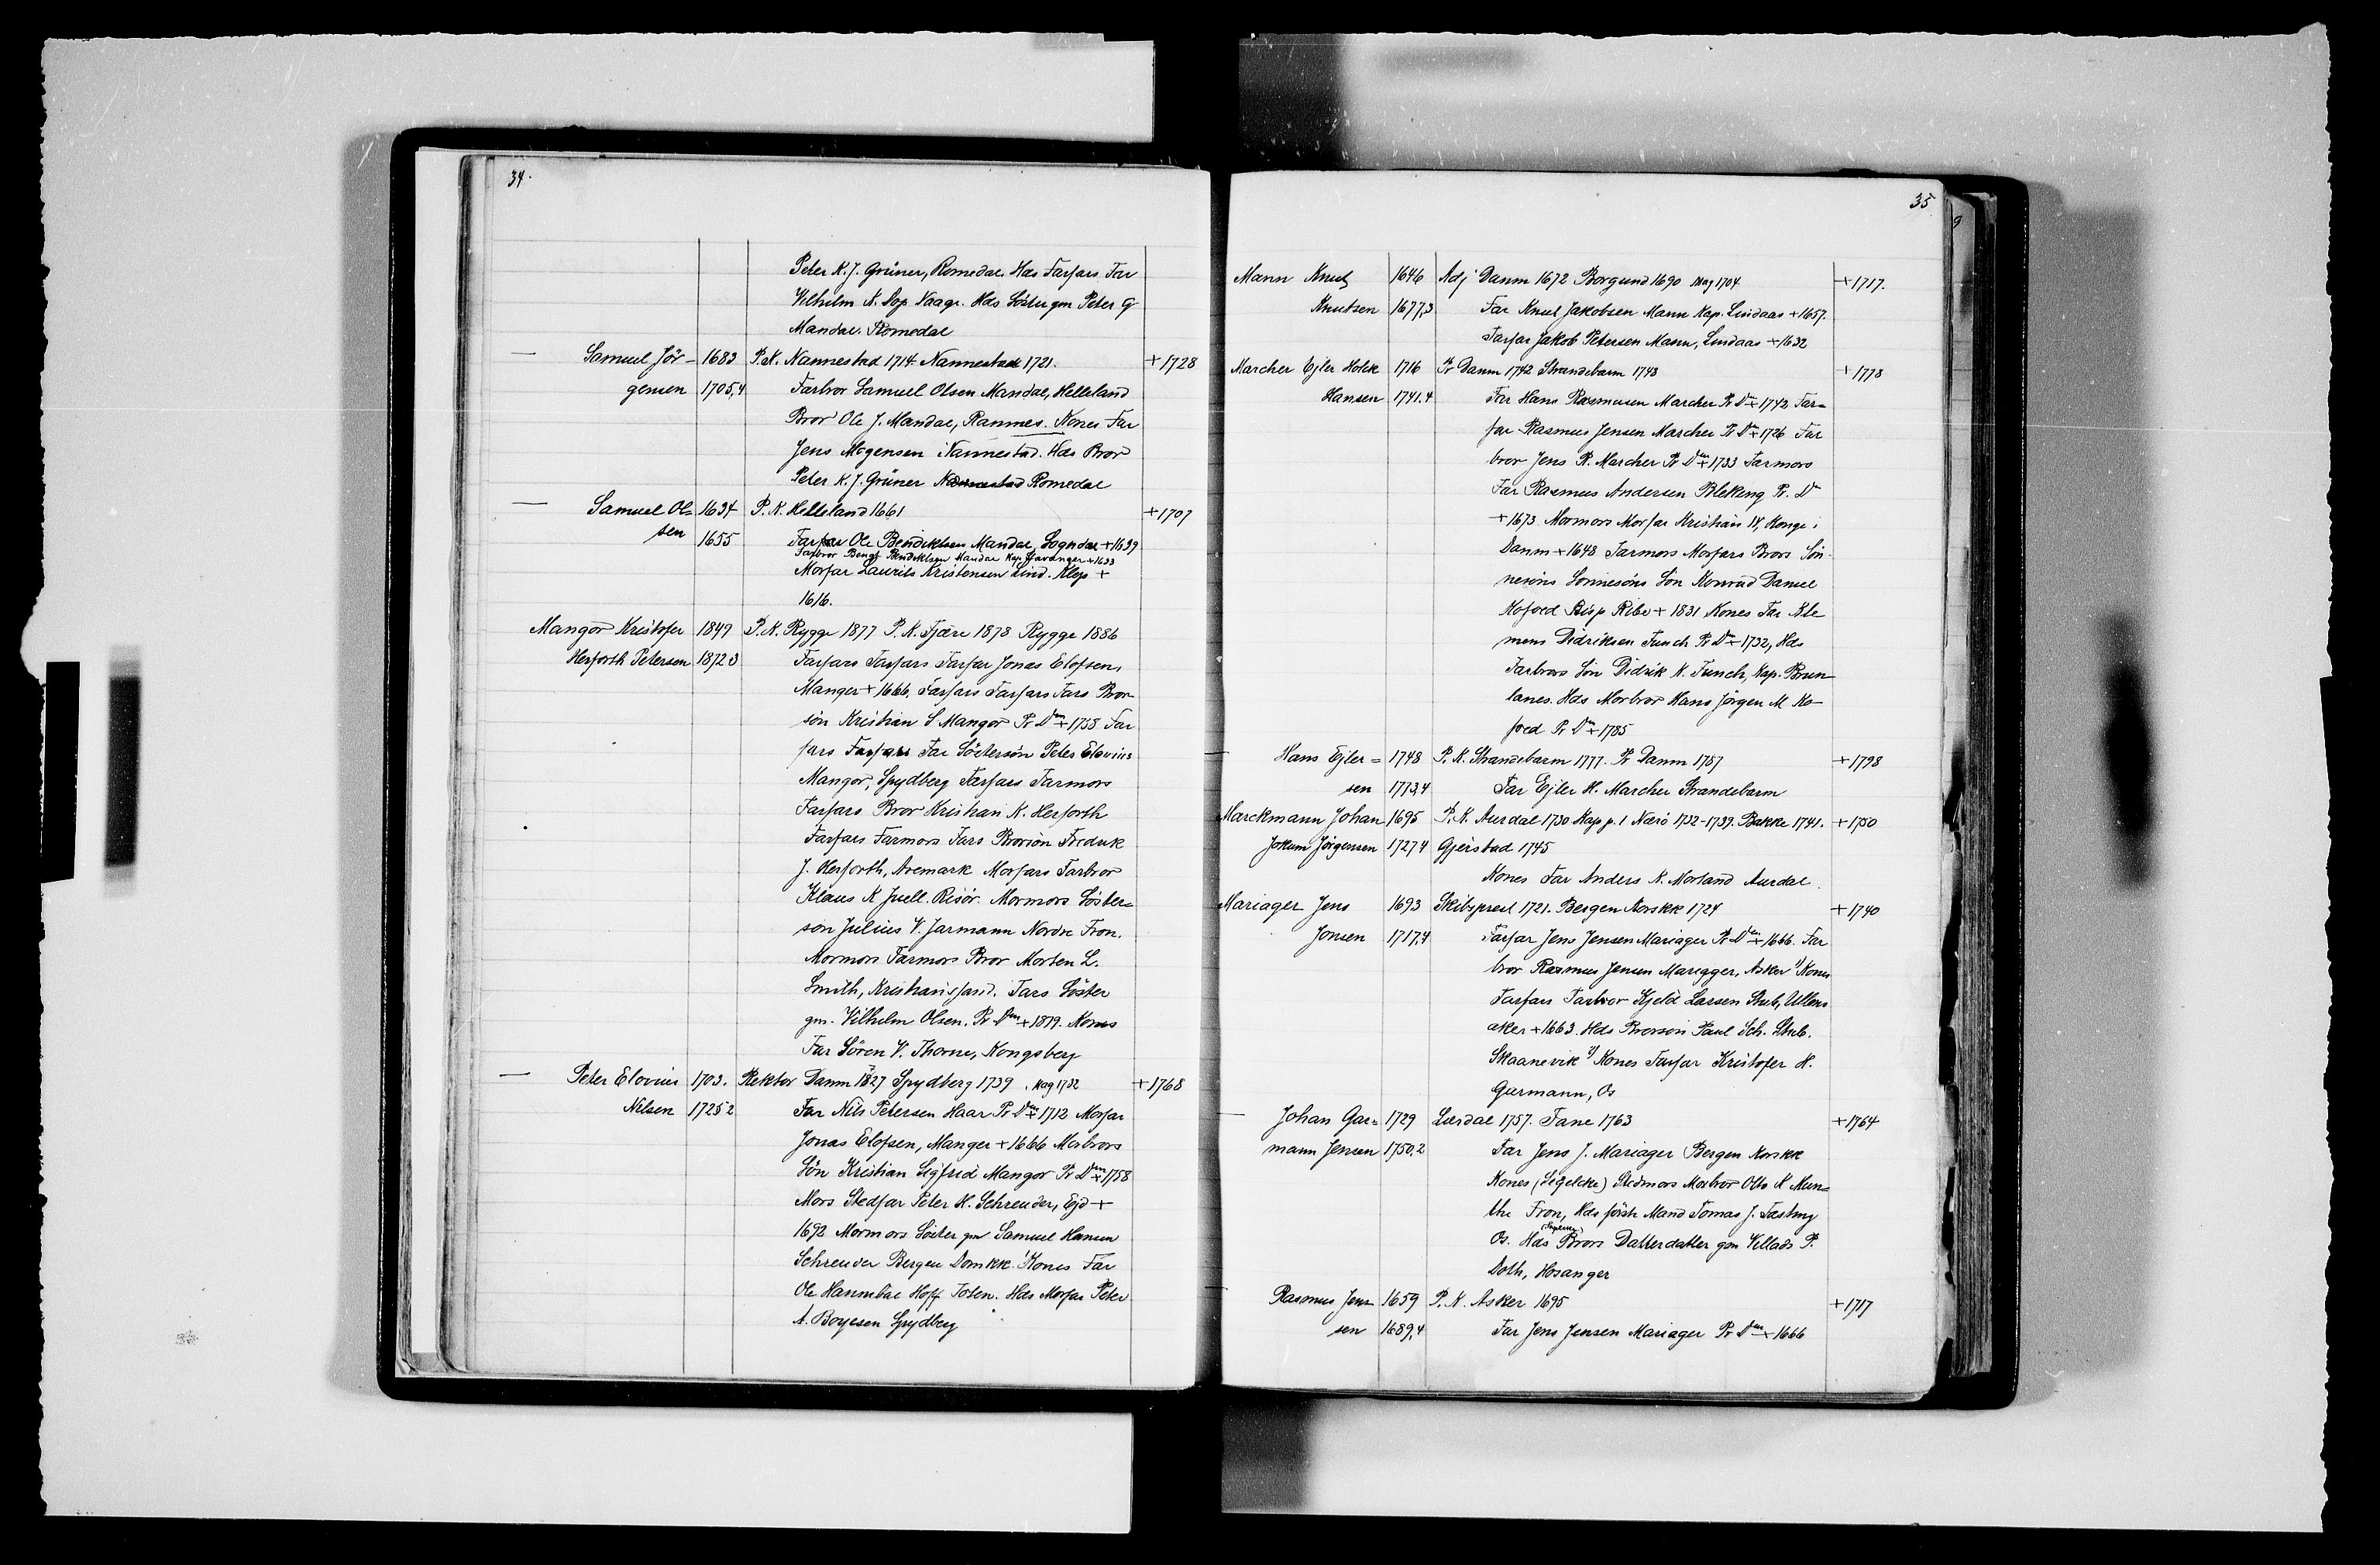 34.
Peter K. J. Grüner, Romedal. Hds Farfars Far
Vilhelm K. Pop Vaage. Hds Söster gm Peter G
Mandal. Romedal
— Samuel Jör- 1683 P.K. Nannestad 1714 Nannestad 1721. +1728
gensen 1705,4 Farbror Samuel Olsen Mandal, Helleland
Bror Ole J. Mandal, Rannes. Kones Far
Jens Mogensen Nannestad. Hds Bror
Peter K. J. Grüner Nannestad Romedal
— Samuel Ol= 1634 P. K. Helleland 1661 +1707
sen 1655 Farfar Ole Bendiktsen Mandal, Sogndal +1639
Farbror Bengt Bendiktsen Mandal Kap. Stavanger +1633
Morfar Laurits Kristensen Lind. Klep +
1616.
Mangor Kristofer 1849 P.K. Rygge 1877 P. K. Fjære 1878 Rygge 1886
Herforth Petersen 1872,3 Farfars Farfars Farfar Jonas Elofsen,
Manger +1666. Farfars Farfars Fars Bror-
sön Kristian S Mangor Pr Dm +1758 Far
fars Farfars Far Söstersön Peter Elovius
Mangor, Spydberg Farfars Farmors
Farfars Bror Kristian K. Herforth
Farfars Farmors Fars Brorsön Fredrik
J. Herforth, Aremark Morfars Farbror
Klaus K Juell. Risör. Mormors Söster=
sön Julius V. Jarmann Nordre Fron.
Mormors Farmors Bror Morten L.
Smith, Kristiansand. Fars Söster
gm. Vilhelm Olsen. Pr Dm +1879. Kones
Far Sören V. Thorne, Kongsberg
— Peter Elovius 1703. Rektor Danm 1727 Spydberg 1739 , Mag 1732 +1768
Nilsen 1725 2 Far Nils Petersen Haar Pr Dm +1712 Morfar
Jonas Elofsen, Manger +1666 Morbrors
Sön Kristian Sigfrid Mangor Pr Dm +1758
Mors Stedfar Peter H. Schreuder, Ejd +
1692 Mormors Söster gm Samuel Hansen
Schreuder Bergen Domkk. Kones Far
Ole Hannibal Hoff Toten. Hds Morfar Peter
A. Boyesen Spydberg
35
Mann Knut 1646 Adj Danm 1672 Borgund 1690 Mag 1704 +1717.
Knutsen 1677,3 Far Knut Jakobsen Mann Kap. Lindaas +1657.
Farfar Jakob Petersen Mann, Lindaas +1632
Marcher Ejler Holck 1716 Pr Danm 1742 Strandebarm 1748 +1778
Hansen 1741.4 Far Hans Rasmussen Marcher Pr Dm +1742 Far=
far Rasmus Jensen Marcher Pr Dm +1726 Far
bror Jens R. Marcher Pr Dm +1733 Farmors
Far Rasmus Andersen Bleking Pr. D
+1673. Mormors Morfar Kristian IV, Konge i
Danm +1648 Farmors Morfars Brors Sön-
nesöns Sönnesöns Sön Konrad Daniel
Kofoed Bisp Ribe +1831 Kones Far Kle
mens Didriksen Funch Pr Dm +1732, Hds
Farbrors Sön Didrik K. Funch, Kap. Brun-
lanes. Hds Morbror Hans Jörgen M Ko-
foed Pr Dm +1785
— Hans Ejler= 1748 P. K. Strandebarm 1777. Pr Danm 1787 +1798
sen 1773,4 Far Ejler H. Marcher Strandebarm
Marckmann Johan 1695 P. K. Aurdal 1730 Kap p. l Nærö 1732-1739. Bakke 1741. +1750
Jokum Jörgensen 1727 4 Gjerstad 1745
Kones Far Anders K. Morland Aurdal.
Mariager Jens 1693 Skibsprest 1721. Bergen Korskk 1724 +1740
Jensen 1717,4 Farfar Jens Jensen Mariager Pr Dm +1666. Far
bror Rasmus Jensen Mariager, Asker 1) Kones
Farfars Farbror Kjeld Lassen Stub, Ullens
aker +1663. Hds Brorsön Paul Sch. Stub.
Skaanevik 2) Kones Farfar Kristofer H.
Garmann, Os
— Johan Gar= 1729 Lærdal 1757. Fane 1763 +1764
mann Jensen 1750,2 Far Jens J. Mariager Bergen Korskk
Kones (Segelcke) Stedmors Morbror Otto K Mun=
the Fron, Hds förste Mand Tomas J. Fasting
Os. Hds Brors Datterdatter gm Villads P.
Doth, Hosanger
Rasmus Jen= 1659 P. K. Asker 1695 +1717
sen 1689,4 Far Jens Jensen Mariager Pr Dm +1666